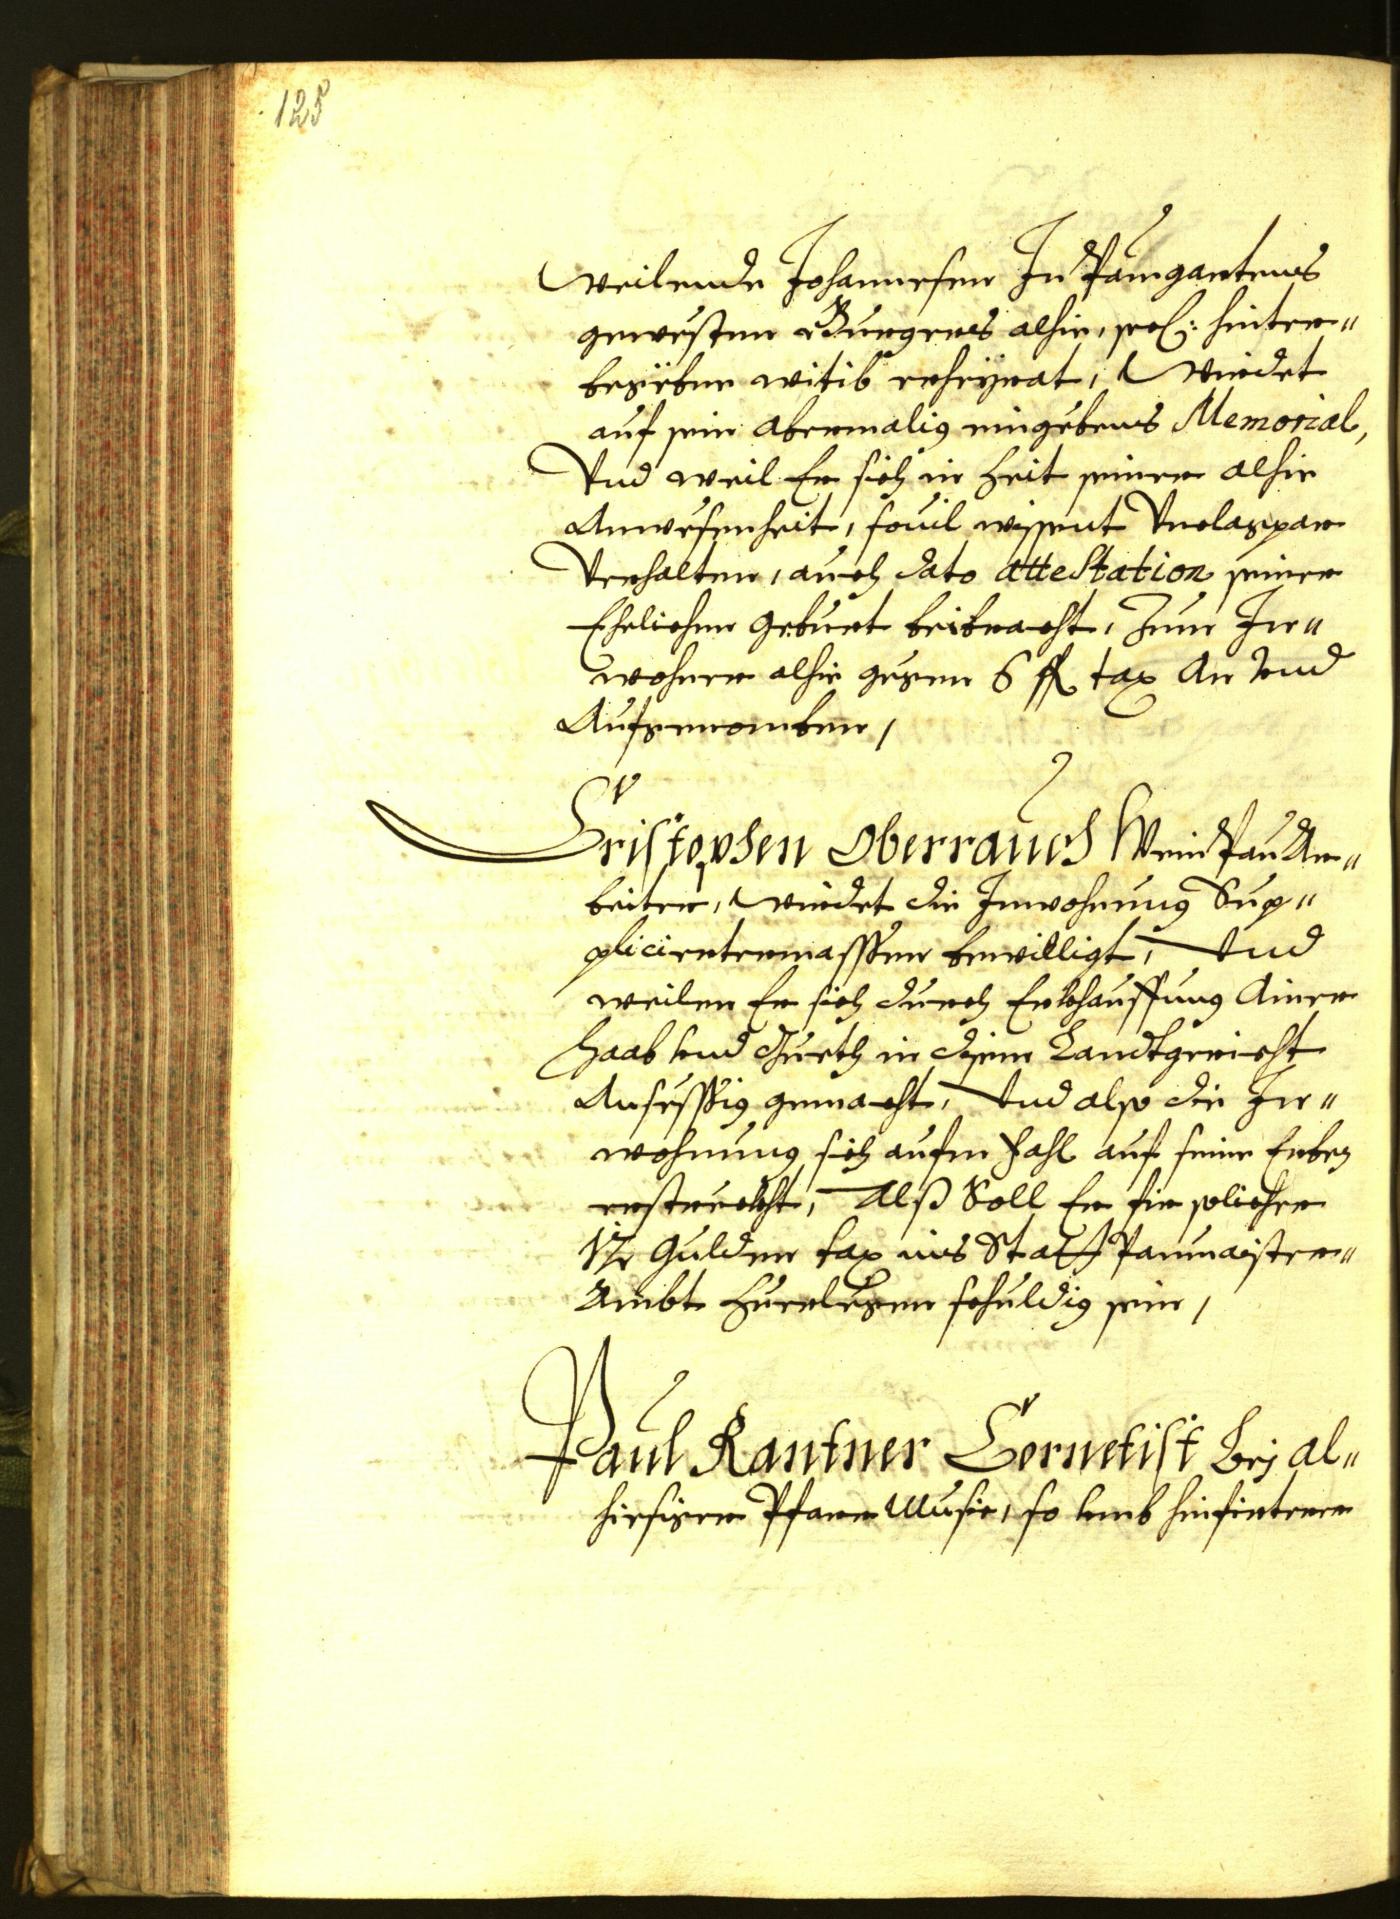 125
weilende Johannesen In Paumgartens
gewesten Burgers alhie, seel: hinter„
lassnen witib erheyrat, Wirdet
auf sein abermalig eingebens Memorial,
Vnd weil Er sich in Zeit seiner alhie
Anwesenheit, souil wissent Vnclagpar
Verhalten, auch dato attestation seiner
Ehrlichen geburt beibracht, zum In„
wohner alhie gegen 6 fl tax An vnd
Aufgenomben,
Cristophen Oberrauch WeinPau Ar„
beiter, wirdet die Inwohnung Sup„
plicirtermassen bewilligt, Vnd
weilen Er sich durch Erkhauffung Ainer
Haab vnd Gueth in disem Landtgericht
Ansessig gemacht, Vnd also die In„
wohnung sich aufm fahl auf seine Erben
erstreckht, Alß Soll Er fir solichen
12 Gulden tax ins Statt Paumaister„
Ambt zuerlegen schuldig sein,
Paul Kantner Cornetist bej al„
hiesiger Pfarr Music, so vmb hinfirterer